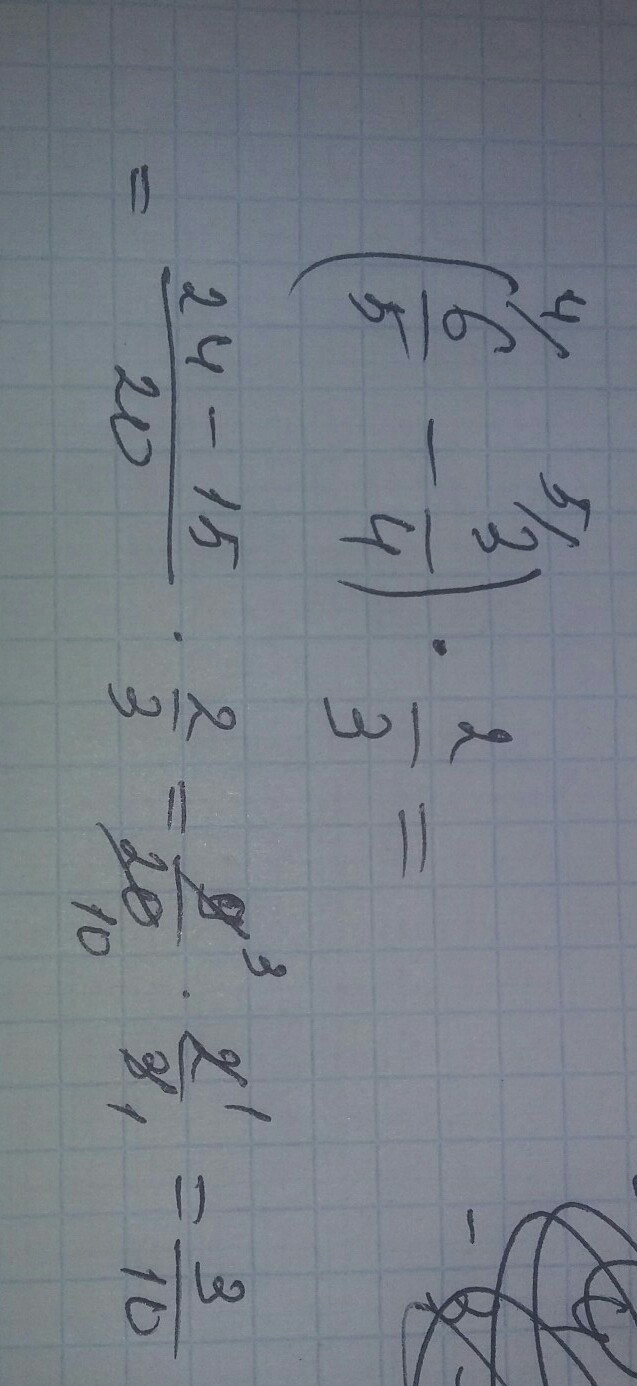 (⁴⁄6/5 - ⁵⁄3/4) · 2/3 =
= (24 - 15)/20 · 2/3 = 9 3/20 10 · 2 1/3 1 = 3/10